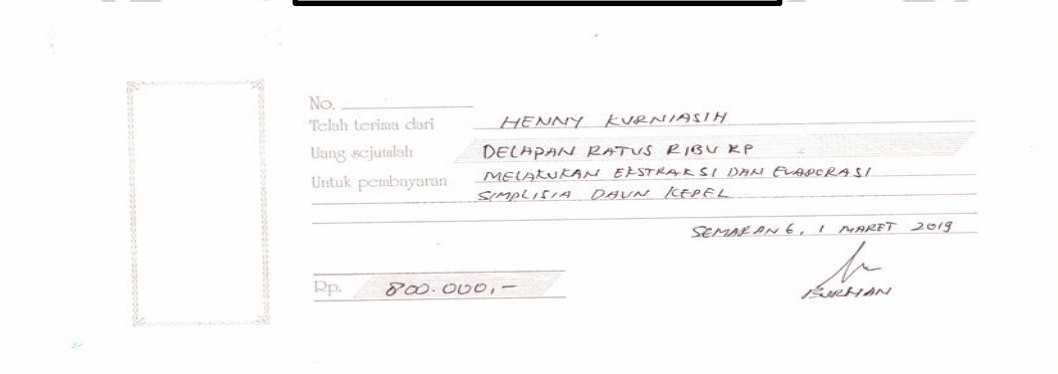 No.
Telah terima dari HENNY KURNIASIH
Uang sejumlah DELAPAN RATUS RIBU RP
Untuk pembayaran MELAKUKAN EKSTRAKSI DAN EVAPORASI
SIMPLISIA DAUN KEPEL
SEMARANG, 1 MARET 2019
Rp. 800.000,-
BURHAN